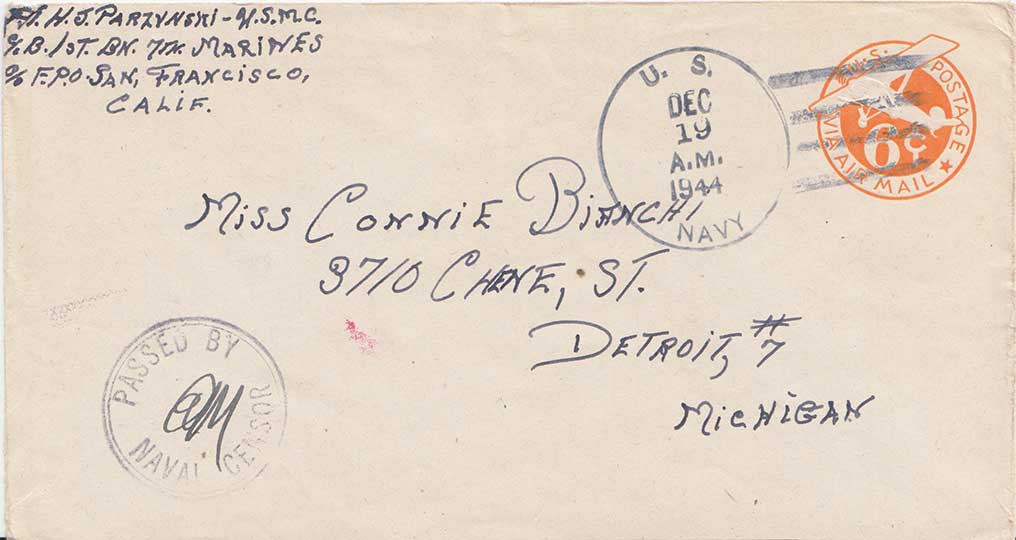 H. J. PARZYNSKI - U.S.M.C.
C/O. B. 1ST. BN. 7TH. MARINES
C/O F.P.O. SAN, FRANCISCO,
CALIF.
U. S.
DEC
19
A.M.
1944
NAVY
U.S. POSTAGE
6¢
VIA AIR MAIL
MISS CONNIE BIANCHI
3710 CHENE, ST.
DETROIT, #7
MICHIGAN
PASSED BY
NAVAL CENSOR